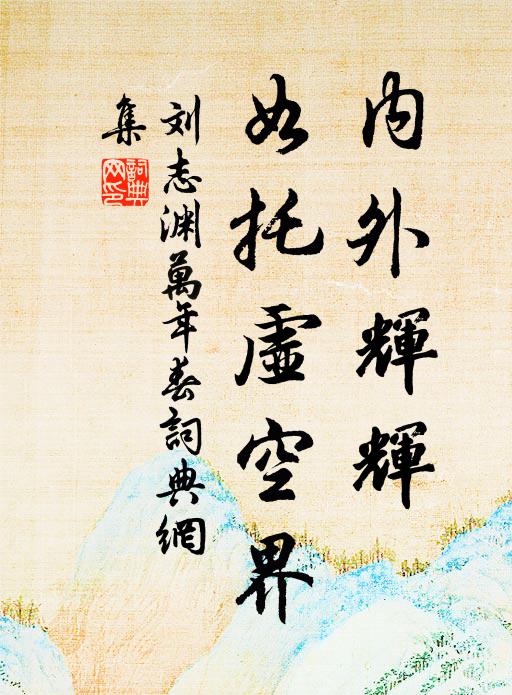 内外輝輝
如托虛空界
刘志渊萬年春詞典網
集
詞典網印